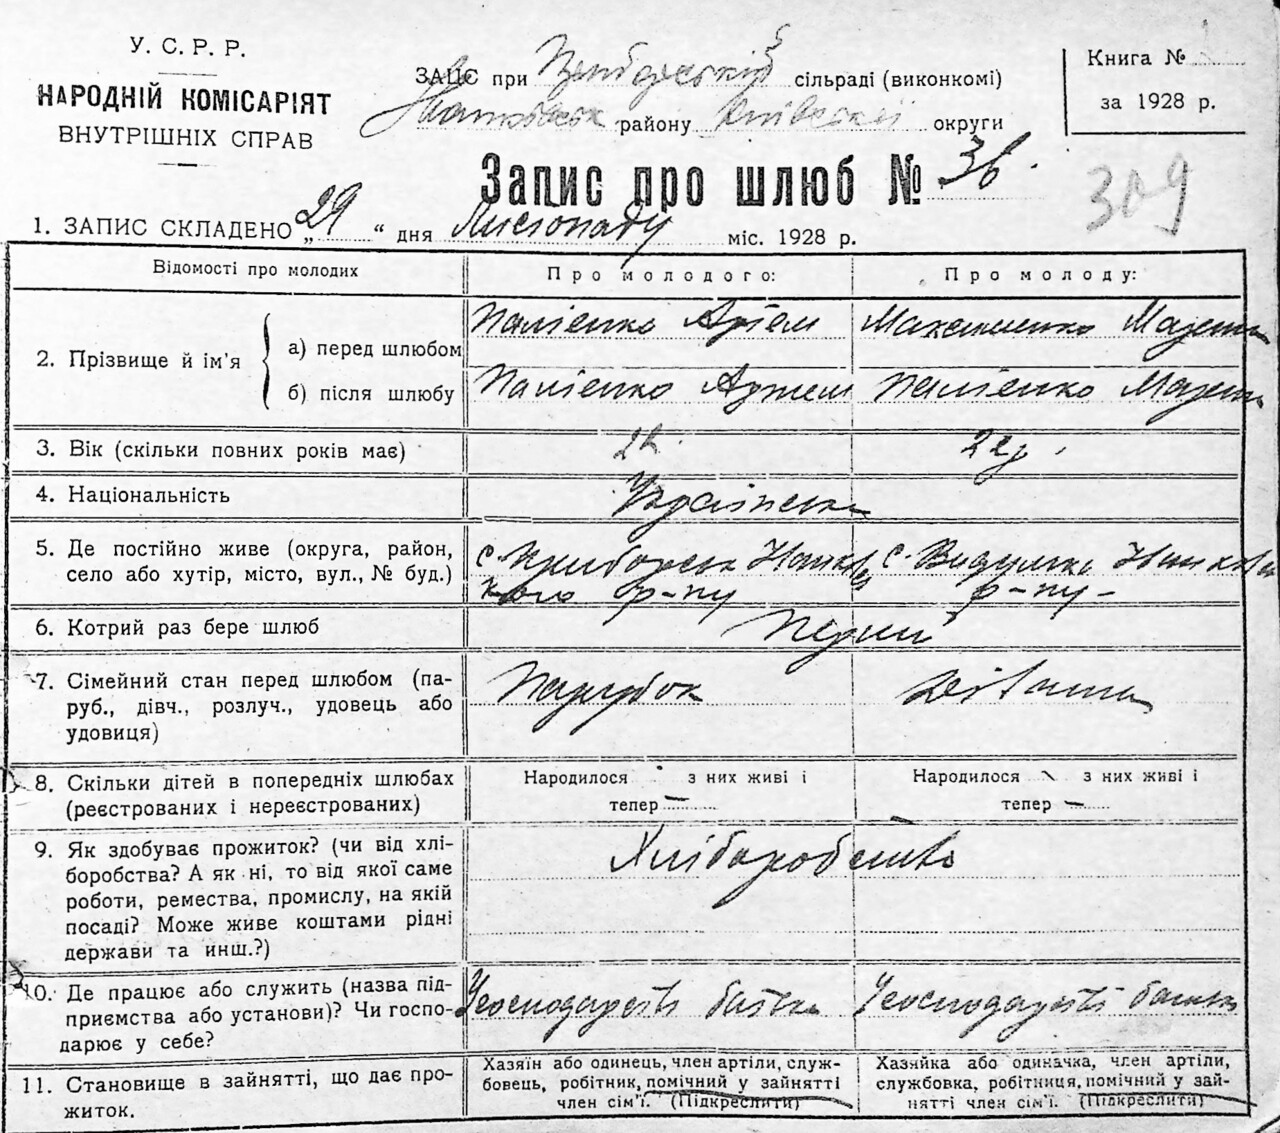 У. С. Р. Р.
НАРОДНІЙ КОМІСАРІЯТ
ВНУТРІШНІХ СПРАВ
ЗАЦС при сільраді (виконкомі)
району Київської округи
Книга №
за 1928 р.
Запис про шлюб № 36.
309
1. ЗАПИС СКЛАДЕНО „29“ дня Листопаду міс. 1928 р.
Відомості про молодих
Про молодого:
Про молоду:
2. Прізвище й ім’я
а) перед шлюбом
Палієнко Артем
Махтименко
б) після шлюбу
Палієнко Артем
Палієнко
3. Вік (скільки повних років має)
4. Національність
Українська
5. Де постійно живе (округа, район,
село або хутір, місто, вул., № буд.)
с. Прибарськ
с. Видумка
р-ну
р-ну
6. Котрий раз бере шлюб
Перший
7. Сімейний стан перед шлюбом (па-
руб., дівч., розлуч., удовець або
удовиця)
Парубок
Дівчина
8. Скільки дітей в попередніх шлюбах
(реєстрованих і нереєстрованих)
Народилося з них живі і
тепер —
Народилося з них живі і
тепер —
9. Як здобуває прожиток? (чи від хлі-
боробства? А як ні, то від якої саме
роботи, ремества, промислу, на якій
посаді? Може живе коштами рідні
держави та инш.?)
Хліборобство
10. Де працює або служить (назва під-
приємства або установи)? Чи госпо-
дарює у себе?
У господарстві батька
У господарстві батька
11. Становище в зайнятті, що дає про-
житок.
Хазяїн або одинець, член артілі, служ-
бовець, робітник, помічний у зайнятті
член сім’ї. (Підкреслити)
Хазяйка або одиначка, член артілі,
службовка, робітниця, помічний у зай-
нятті член сім’ї. (Підкреслити)